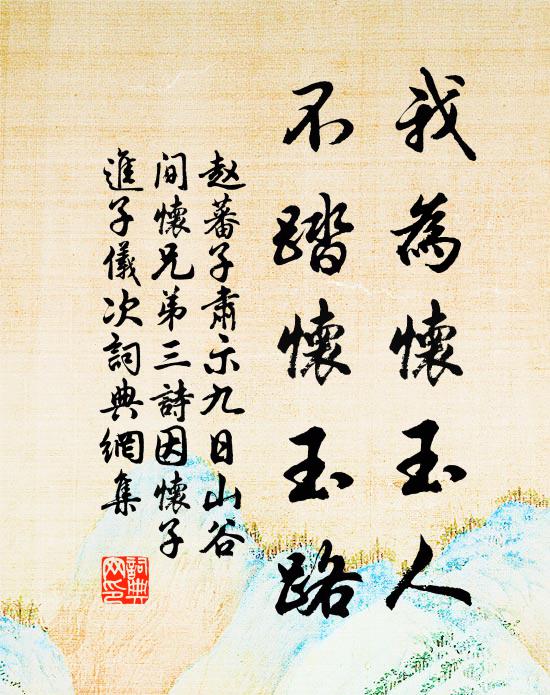 我為懷玉人
不踏懷玉路
赵蕃子肅示九日山谷
间懷兄弟三詩因懷子
進子儀次詞典網集
詞典
网印